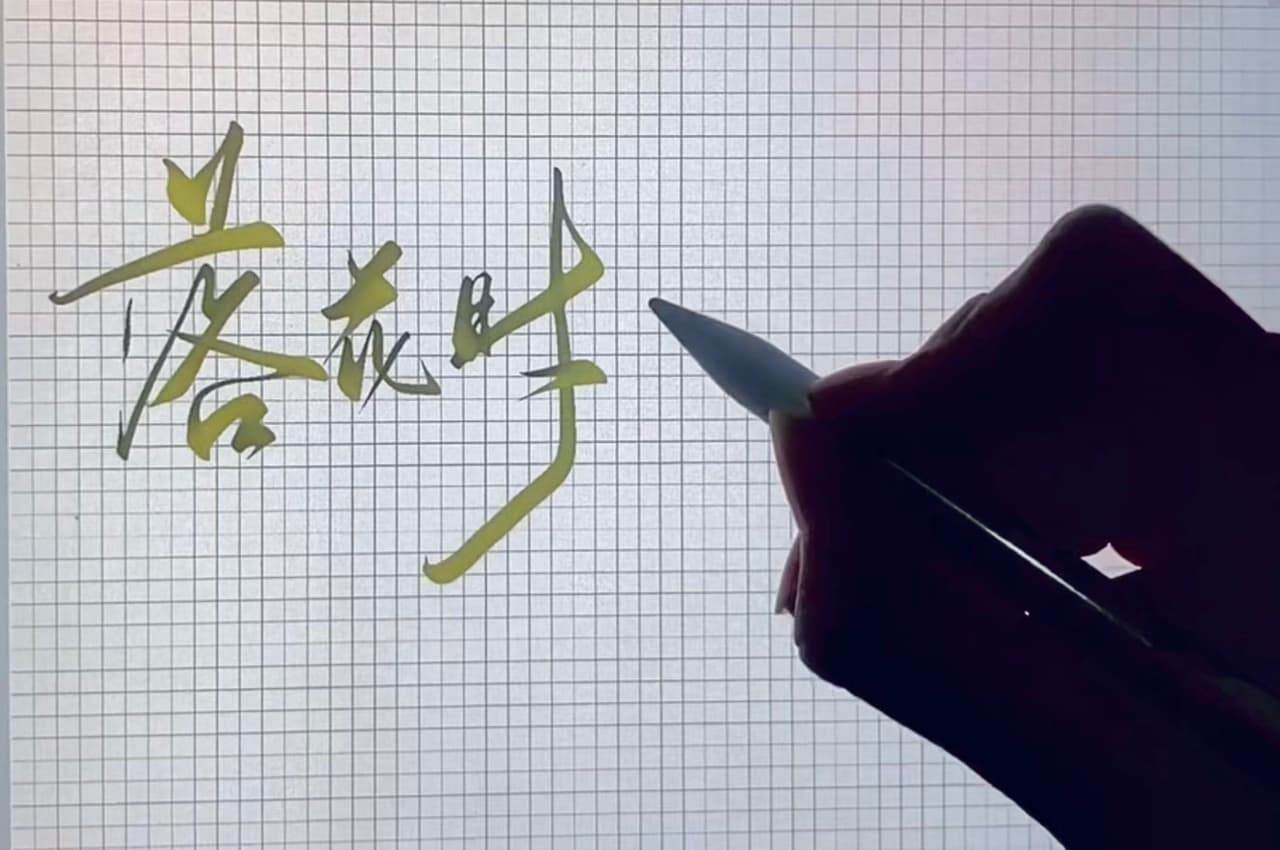 落花时